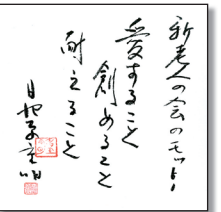 新老人の会のモットー
愛すること
創めること
耐えること
日野原重明